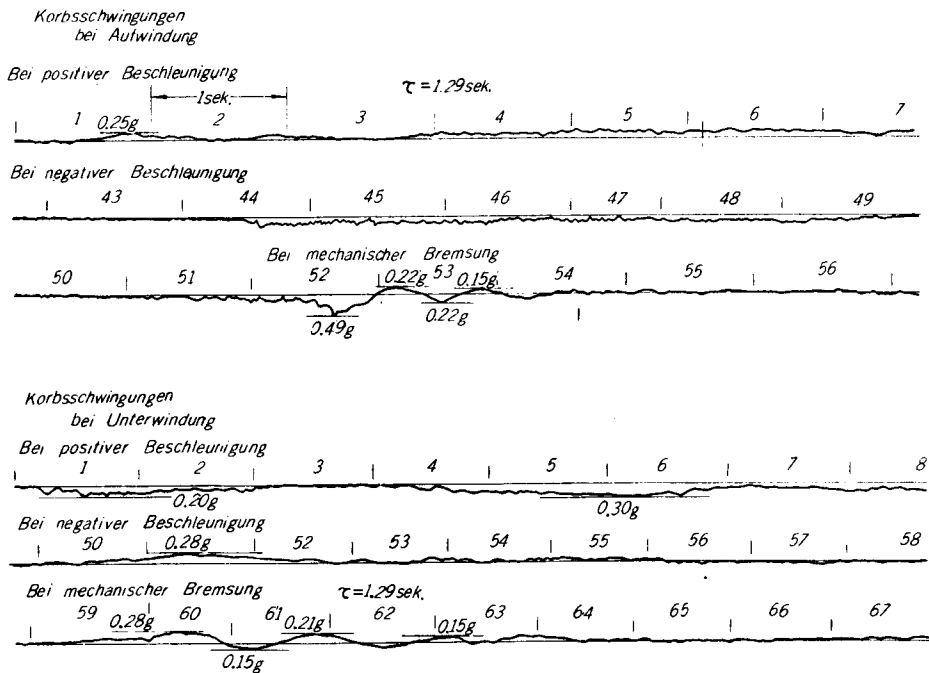 Korbsschwingungen
bei Aufwindung
Bei positiver Beschleunigung
1sek.
τ=1.29sek.
1 0.25g 2 3 4 5 6 7
Bei negativer Beschleunigung
43 44 45 46 47 48 49
Bei mechanischer Bremsung
50 51 52 0.22g 53 0.15g 54 55 56
0.49g 0.22g
Korbsschwingungen
bei Unterwindung
Bei positiver Beschleunigung
1 2 3 4 5 6 7 8
0.20g 0.30g
Bei negativer Beschleunigung
50 0.28g 52 53 54 55 56 57 58
Bei mechanischer Bremsung τ=1.29sek.
59 0.28g 60 61 0.21g 62 0.15g 63 64 65 66 67
0.15g